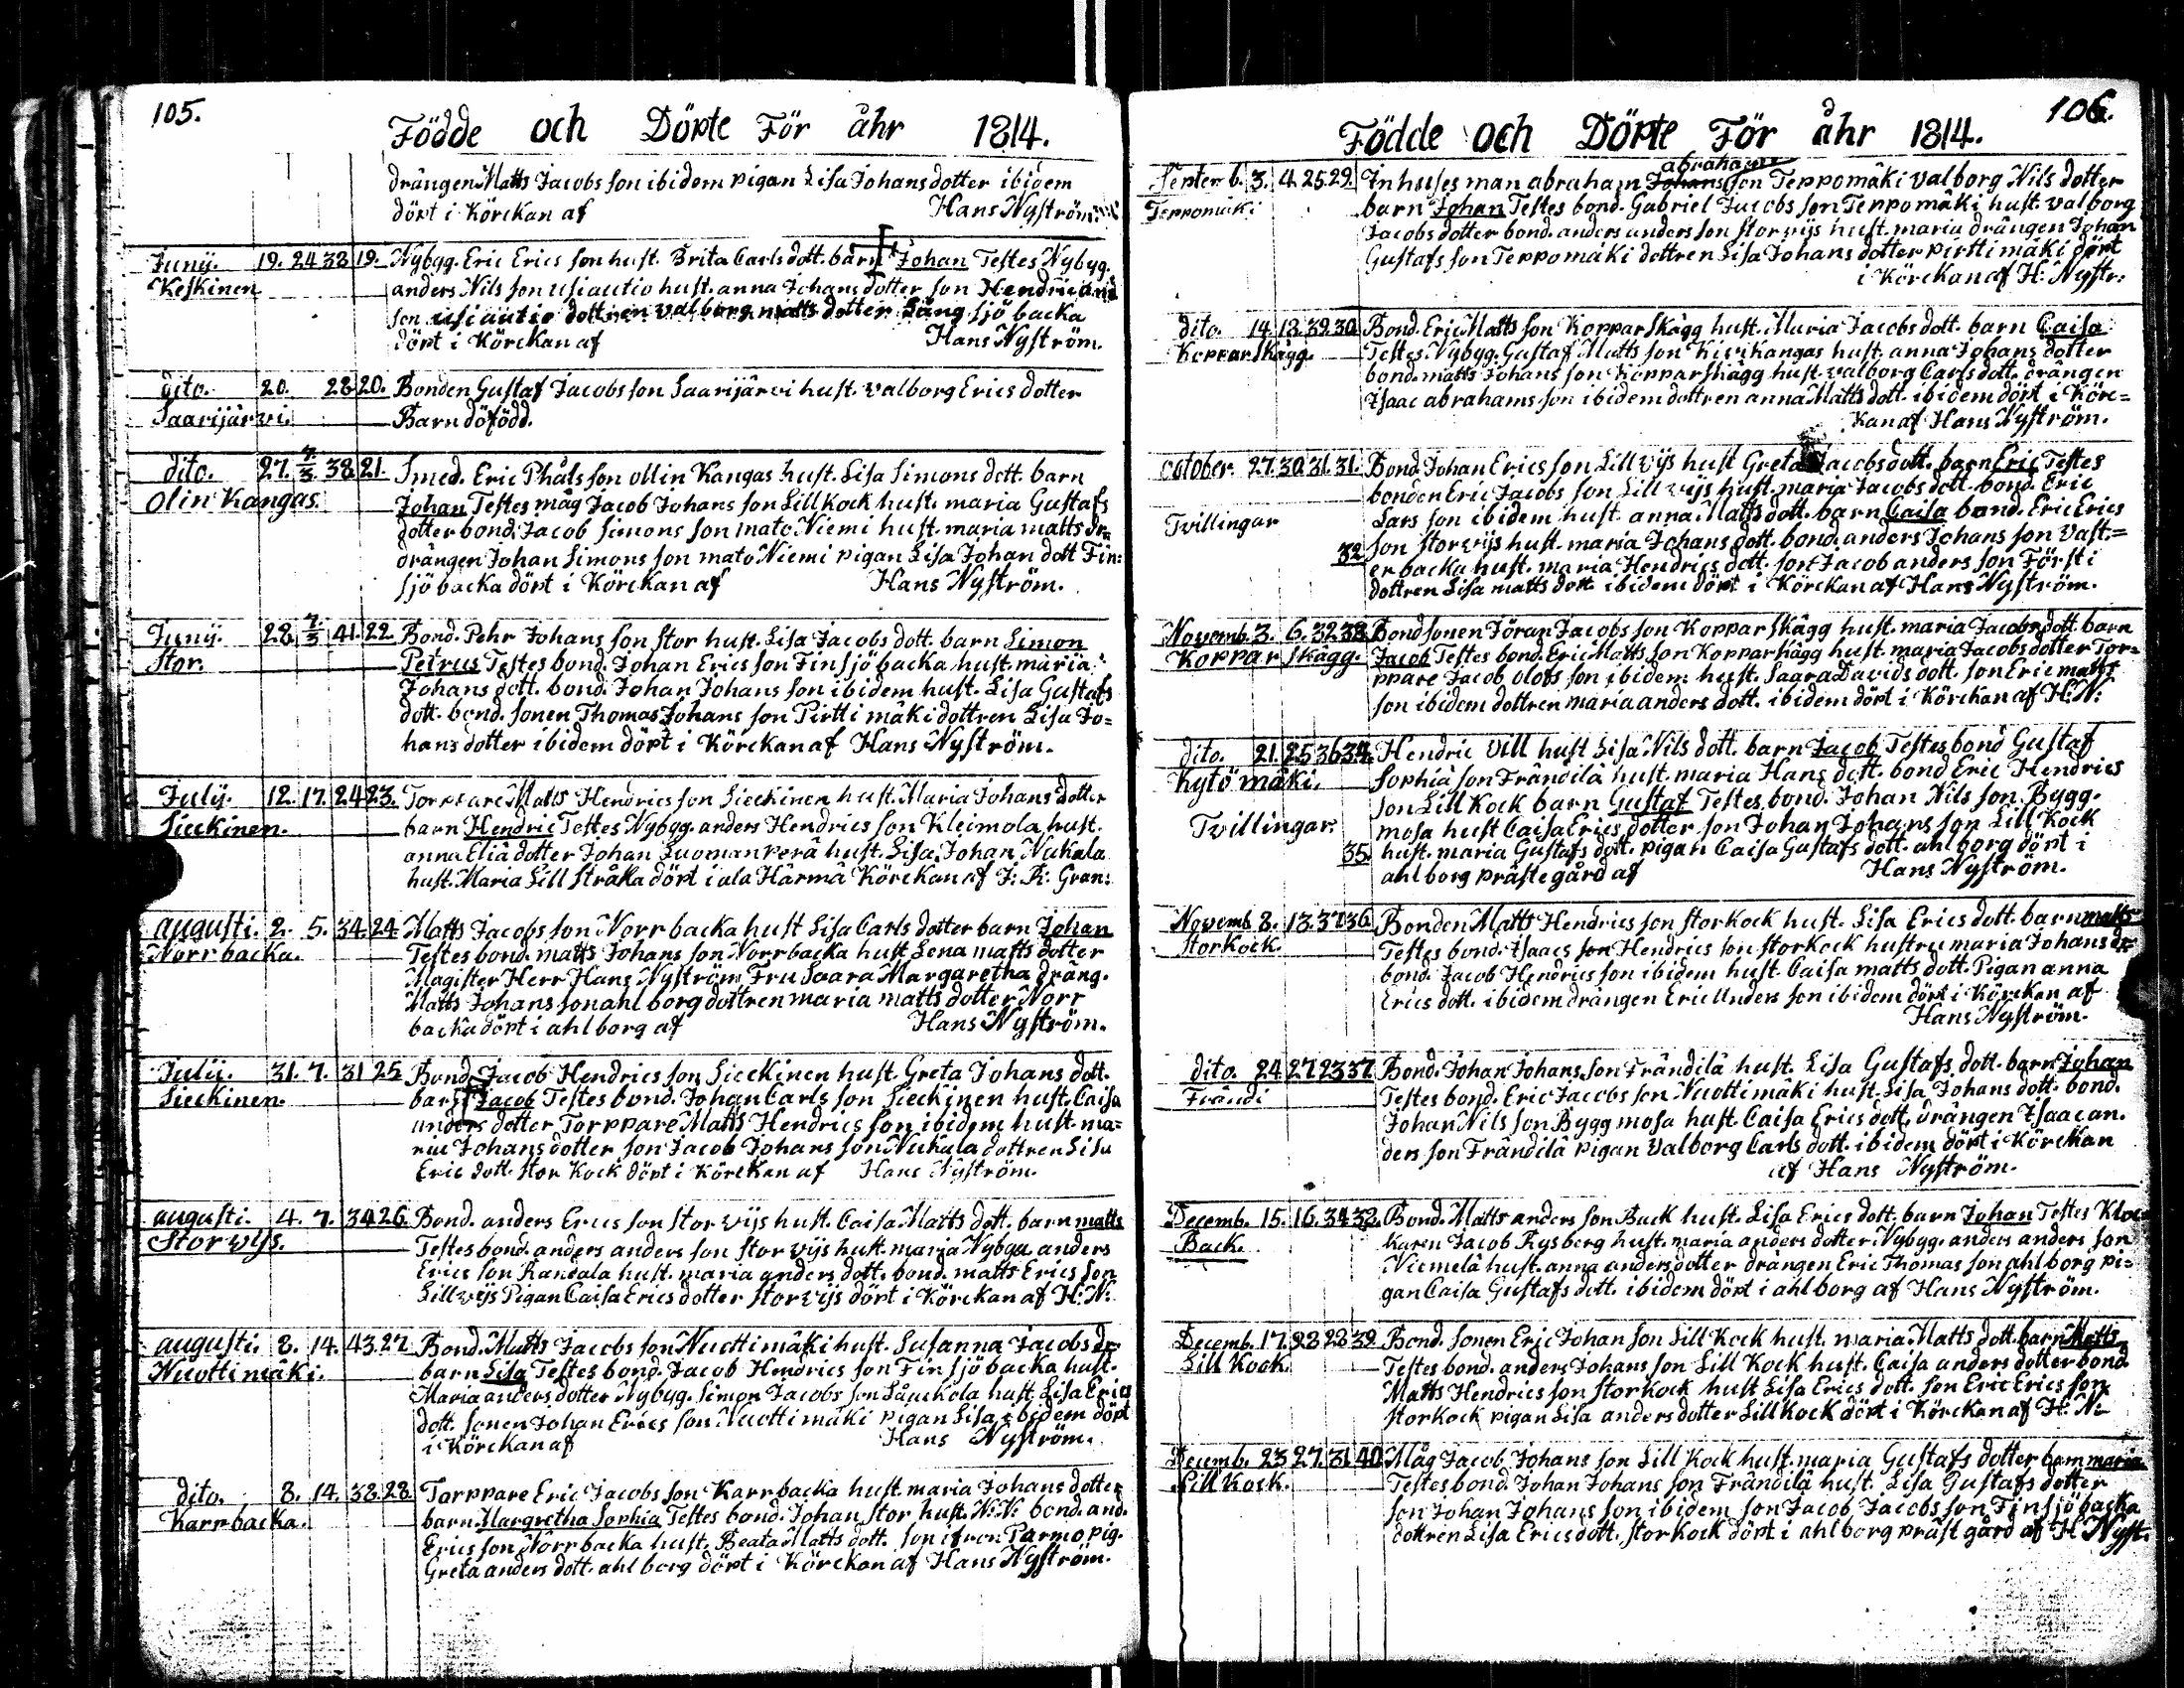 105.
Födde och Döpte För åhr 1814.
drängen Matts Jacobs son ibidem pigan Lisa Johansdotter ibidem
döpt i Körckan af Hans Nyström
Junij. 19. 24 38 19. Nybygg. Eric Erics son hust. Brita Carls dott. barn Johan Testes Nybyg.
Keskinen anders Nils son usiautio hust. anna Johans dotter son Hendric and
son usiautio dottren valborg matts dotter Läng sjö backa
döpt i Körckan af Hans Nyström.
dito. 20. 28 20. Bonden Gustaf Jacobs son Saarijärvi hust. valborg Erics dotter
Saarijärvi. Barn döfödd.
dito. 27. 7/3 38 21. Smed. Eric Phåls son ollin Kangas hust. Lisa Simons dott. barn
Olin Kangas. Johan Testes måg Jacob Johans son Lill Kock hust. maria Gustafs
dotter bond. Jacob Simons son mato Niemi hust. maria matts dr.
drängen Johan Simons son mato Niemi pigan Lisa Johan dott Fin:
sjö backa döpt i Körckan af Hans Nyström.
Junij. 28. 7/3 41. 22. Bond. Pehr Johans son stor hust. Lisa Jacobs dott. barn Simon
Stor. Petrus Testes bond. Johan Erics son Fin sjö backa hust. maria
Johans dott. bond. Johan Johans son ibidem hust. Lisa Gustafs
dott. bond. sonen Thomas Johans son Pirtti mäki dottren Lisa Jo=
hans dotter ibidem döpt i Körckan af Hans Nyström.
Julij. 12. 17. 24 23. Torppare Matts Hendrics son Sieckinen hust. Maria Johans dotter
Sieckinen. barn Hendric Testes Nybyg. anders Hendrics son Kleimola hust.
anna Eliä dotter Johan Luoman perä hust. Lisa, Johan Nukala
hust. Maria Lill Stråka döpt i ala Härmä Körckan af J: R: Gran:
augusti. 2. 5. 34 24 Matts Jacobs son Norrbacka hust Lisa Carls dotter barn Johan
Norrbacka. Testes bond. matts Johans son Norrbacka hust Lena matts dotter
Magister Herr Hans Nyström Fru Saara Margaretha dräng.
Matts Johans son ahlborg dottren maria matts dotter Norr
backa döpt i ahlborg af Hans Nyström.
Julij. 31. 7. 31 25 Bond. Jacob Hendrics son Sieckinen hust. Greta Johans dott.
Sieckinen. barn Jacob Testes bond. Johan Carls son Sieckinen hust. Caisa
anders dotter Torppare Matts Hendrics son ibidem hust. ma=
ria Johans dotter son Jacob Johans son Nukala dottren Lisa
Eric dott. stor Kock döpt i Körckan af Hans Nyström.
augusti. 4. 7. 34 26 Bond. anders Erics son Stor wijs hust. Caisa Matts dott. barn matts
Stor wijs. Testes bond. anders anders son stor vijs hust. maria Nybyg. anders
Erics son Randala hust. maria anders dott. bond. matts Erics son
Lill vijs Pigan Caisa Erics dotter stor vijs döpt i Körckan af H: N:
augusti. 8. 14. 43. 27. Bond. Matts Jacobs son Nuotti mäki hust. Susanna Jacobs dr.
Nuotti mäki. barn Lisa Testes bond. Jacob Hendrics son Fin sjö backa hust.
Maria anders dotter Nybyg. Simon Jacobs son hust. Lisa Eric
dott. sonen Johan Erics son Nuotti mäki pigan Lisa ibidem döpt
i Körckan af Hans Nyström.
dito. 8. 14. 38. 28. Torppare Eric Jacobs son Karrbacka hust maria Johans dotter
Karrbacka. barn Margretha Sophia Testes bond. Johan Stor hust. N: N: bond. and.
Erics son Norrbacka hust. Beata Matts dott. son Parmo pig.
Greta anders dott. ahlborg döpt i Körckan af Hans Nyström.
106.
Födde och Döpte För åhr 1814.
Septemb. 3. 4. 25. 29. Inhuses man abraham Johans son Teppomäki valborg Nils dotter
abrahams
Teppomäki barn Johan Testes bond. Gabriel Jacobs son Teppomäki hust. valborg
Jacobs dotter bond. anders anders son stor vijs hust. maria drängen Johan
Gustafs son Teppomäki dottren Lisa Johans dotter pirtti mäki döpt
i Körckan af H: Nystr:
dito. 14. 18. 39. 30. Bond. Eric Matts son Koppar Skägg hust. Maria Jacobs dott. barn Caisa
Koppar Skägg. Testes Nybyg. Gustaf Matts son Kivikangas hust. anna Johans dotter
bond. matts Johans son Kopparskägg hust. valborg Carls dott. drängen
Isaac abrahams son ibidem dottren anna Matts dott. ibidem döpt i Kör=
kan af Hans Nyström.
october 27. 30. 31. 31. Bond. Johan Erics son Lill vijs hust Greta Jacobs dott. barn Eric Testes
bonden Eric Jacobs son Lill vijs hust. maria Jacobs dott. bond. Eric
Tvillingar Lars son ibidem hust. anna Matts dott. barn Caisa bond. Eric Erics
32 son stor vijs hust. maria Johans dott. bond. anders Johans son Väst=
er backa hust. maria Hendrics dott. son Jacob anders son Försti
dottren Lisa matts dott. ibidem döpt i Körckan af Hans Nyström.
Novemb. 3. 6. 32 33. Bond sonen Jöran Jacobs son Koppar Skägg hust. maria Jacobs dott. barn
Koppar Skägg. Jacob Testes bond. Eric Matts son Kopparskägg hust. maria Jacobs dotter Tor=
ppare Jacob olofs son ibidem hust. Saara Davids dott. son Eric matts
son ibidem dottren maria anders dott. ibidem döpt i Körckan af H: N:
dito. 21. 25 36 34. Hendric Vill hust Lisa Nils dott. barn Jacob Testes bond Gustaf
Kytömäki. Sophia son Frändilä hust. maria Hans dott. bond Eric Hendrics
son Lill Kock barn Gustaf Testes bond. Johan Nils son Bygg=
Tvillingar. mosa hust Caisa Erics dotter son Johan Johans son Lill Kock
35. hust. maria Gustafs dott. pigan Caisa Gustafs dott. ahlborg döpt i
ahlborg prästegård af Hans Nyström.
Novemb. 8. 13. 37 36. Bonden Matts Hendrics son Storkock hust. Lisa Erics dott. barn matts
Storkock. Testes bond. Isaacs son Hendrics son storkock hustru maria Johans dr.
bond. Jacob Hendrics son ibidem hust. Caisa matts dott. Pigan anna
Erics dott. ibidem drängen Eric Anders son ibidem döpt i Körckan af
Hans Nyström.
dito. 24 27. 23 37. Bond. Johan Johans son Frändilä hust. Lisa Gustafs dott. barn Johan
Frändi Testes bond. Eric Jacobs son Nuottimäki hust. Lisa Johans dott. bond.
Johan Nils son Bygg mosa hust. Caisa Erics dott. drängen Isaac an.
ders son Frändilä pigan Valborg Carls dott. ibidem döpt i Körckan
af Hans Nyström.
Decemb. 15. 16. 34 38. Bond. Matts anders son Back hust. Lisa Erics dott. barn Johan Testes Kloc
Back. karen Jacob Rysberg hust. maria anders dotter Nybyg. anders anders son
Niemelä hust. anna anders dotter drängen Eric Thomas son ahlborg pi=
gan Caisa Gustafs dott. ibidem döpt i ahlborg af Hans Nyström.
Decemb. 17. 28 28 39. Bond. sonen Eric Johan son Lill Kock hust. maria Matts dott. barn Matts
Lill Kock. Testes bond. anders Johans son Lill Kock hust. Caisa anders dotter bond.
Matts Hendrics son storkock hust Lisa Erics dott. son Eric Erics son
storkock pigan Lisa anders dotter Lill Kock döpt i Körckan af H: N:
Decemb. 23 27. 31 40 Måg Jacob Johans son Lill Kock hust. maria Gustafs dotter barn maria
Lill Kock. Testes bond. Johan Johans son Frändilä hust. Lisa Gustafs dotter
son Johan Johans son ibidem son Jacob Jacobs son Finsjö backa
dottren Lisa Erics dott. storkock döpt i ahlborg präst gård af H Nyst.